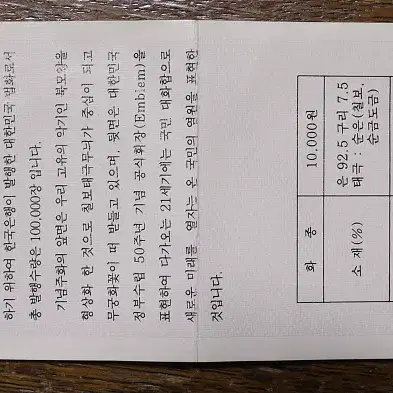 하기 위하여 한국은행이 발행한 대한민국 법화로서
총 발행수량은 100,000장 입니다.
기념주화의 앞면은 우리 고유의 악기인 북모양을
형상화 한 것으로 칠보태극무늬가 중심이 되고
무궁화꽃이 떠 받들고 있으며, 뒷면은 대한민국
정부수립 50주년 기념 공식휘장(Emblem)을
표현하여 다가오는 21세기에는 국민 대화합으로
새로운 미래를 열자는 온 국민의 염원을 표현한
것입니다.
화 종 10,000원
소 재(%) 은 92.5 구리 7.5
태극 : 순은(칠보,
순금도금)